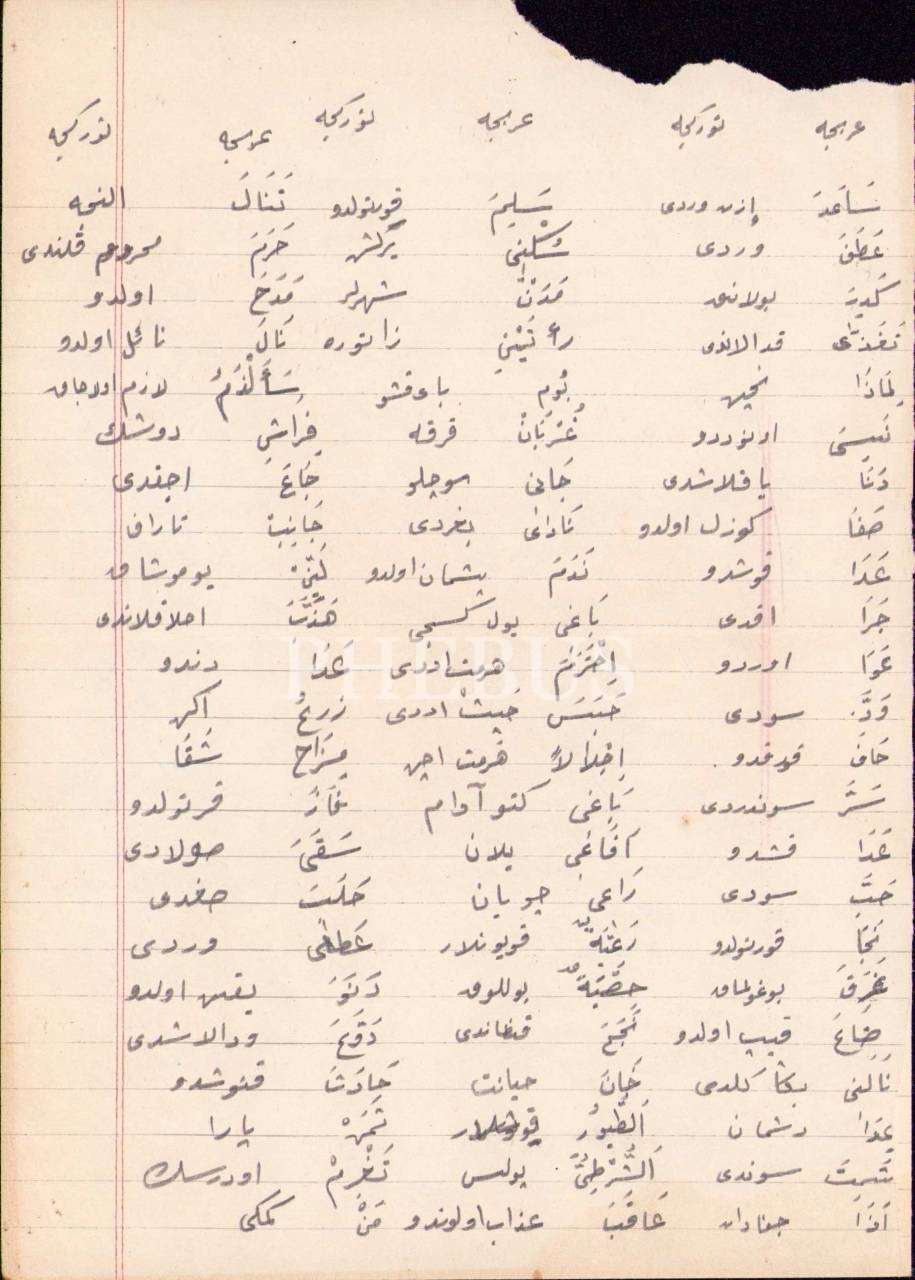 عربجه توركجه عربجه توركجه عربجه توركجه
سَاعَدَ إذن وردى يَسْلِمَ قورتولدو تَنَالَ
عَطَفَ وردى سُكْنِى يرلش حَرَمَ محروم قلندى
كَدِرَ بولاندى مُدُنْ شهرلر اولدو
رأتْنِي نَالَ نائل اولدو
لِمَاذَا نچين بُوم بايقشو سَأَلْذَمُ لازم اولاجاق
نَسِىَ اونوددو غُرْبَانْ قرقه فِراشِ دوشك
دَنَا ياقلاشدى جَانى سوچلو جَاعَ اجقدى
صَفَا كوزل اولدو نَادَى بغردى جَانِبْ تاراف
عَدَا قوشدو نَدَمَ پشمان اولدو لَيِّنْ يوموشاق
جَرَا اقدى بَاغى يول كسيجى هَذَّبَ اخلاقلاندى
عَوَا اوردو اِحْتَرَمَ هرمت اددى غَدَا دندو
وَدَّ سودى حَبَسَ حپيث اددى زَرعُ اكن
خَافَ قورقدو اِجْلالاً هرمت اچن مِزَاح شَقَا
سَرَّ سوندردى بَاغى كتو آدام فَازَ قرتولدو
عَدَا قشدو اَفَاعِى يلان سَقَىَ صولادى
حَبَّ سودى رَاعى چوبان حَلَبَ صغدى
نَجَا قورتولدو قويونلار عَطَى وردى
غَرِقَ بوغولماق بوللوق دَنَوَ يقين اولدو
ضَاعَ قيب اولدو نَجَحَ قظاندى وَدَّعَ ودالاشدى
نَالنى بكا كلدى خَانَ حيانت حَادَثَ قنوشدو
عِدَا دشمان اَلطُّيورُ قوشلار يارا
شَمِتَ سوندى اَلشُّرْطِىُّ پولس تَغْرِمْ اودرسك
اَذَا جفادان عَاقَبَ عذاب اولوندو مَنْ كمكى
PHEBUS